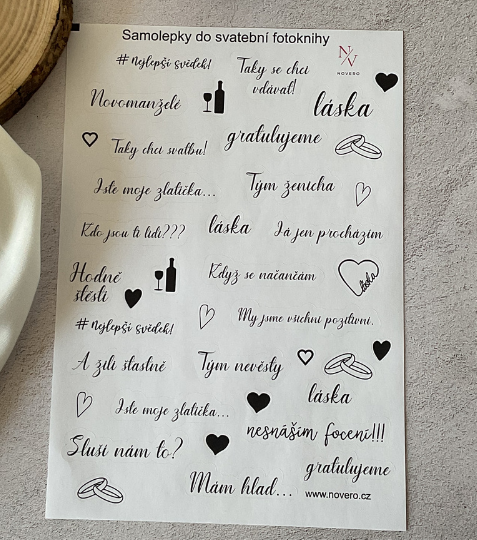 Samolepky do svatební fotoknihy
#nejlepší svědek!
Taky se chci
vdávat!
NV
NOVERO
Novomanželé
láska
Taky chci svatbu!
gratulujeme
Jste moje zlatíčka...
Tým ženicha
Kdo jsou ti lidi???
láska
Já jen procházím
Hodně
štěstí
Když se načančám
láska
#nejlepší svědek!
My jsme všichni pozitivní.
A žili šťastně
Tým nevěsty
láska
Jste moje zlatíčka...
nesnáším focení!!!
Sluší nám to?
gratulujeme
Mám hlad...
www.novero.cz